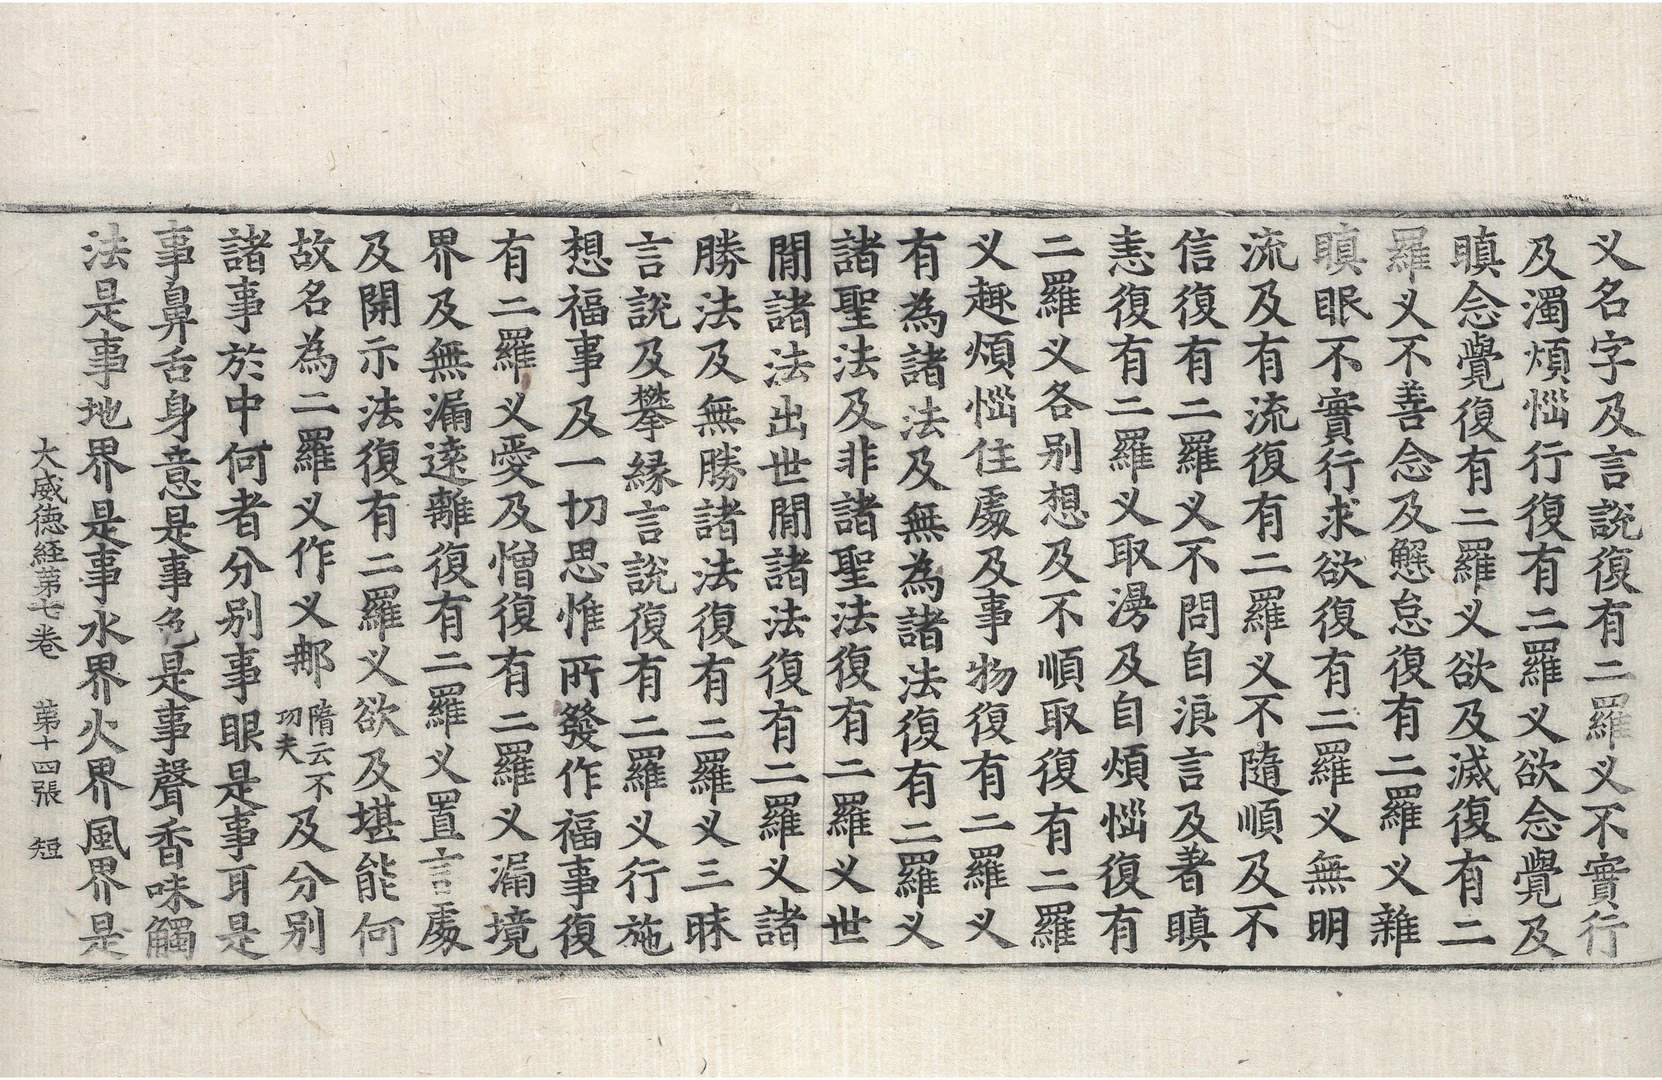 义名字及言說復有二羅义不實行
及濁煩惱行復有二羅义欲念覺及
瞋念覺復有二羅义欲及滅復有二
羅义不善念及懈怠復有二羅义雜
瞋眼不實行求欲復有二羅义無明
流及有流復有二羅义不隨順及不
信復有二羅义不問自浪言及著瞋
恚復有二羅义取漫及自煩惱復有
二羅义各别想及不順取復有二羅
义趣煩惱住處及事物復有二羅义
有為諸法及無為諸法復有二羅义
諸聖法及非諸聖法復有二羅义世
閒諸法出世閒諸法復有二羅义諸
勝法及無勝諸法復有二羅义三昧
言說及攀緣言說復有二羅义行施
想福事及一切思惟所發作福事復
有二羅义愛及憎復有二羅义漏境
界及無漏遠離復有二羅义置言處
及開示法復有二羅义欲及堪能何
故名為二羅义作义那隋云不功夫及分别
諸事於中何者分别事眼是事耳是
事鼻舌身意是事色是事聲香味觸
法是事地界是事水界火界風界是
大威德経第七卷 第十四張 短